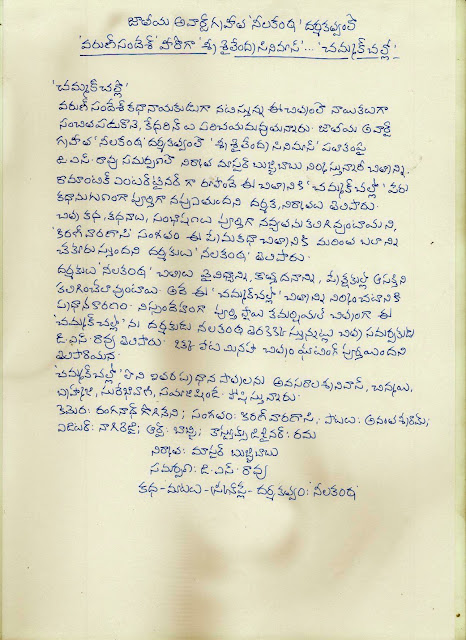 జాతీయ అవార్డ్ గ్రహీత 'నీలకంఠ' దర్శకత్వంలో
'వరుణ్ సందేశ్' హీరోగా 'శ్రీ శైలేంద్ర సినిమాస్'... 'చమ్మక్ చల్లో'
'చమ్మక్ చల్లో'
వరుణ్ సందేశ్ కథానాయకుడుగా నటిస్తున్న ఈ చిత్రంలో నాయికలుగా
సంచితపదుకొనె, కేథరిన్ లు పరిచయమవుతున్నారు. జాతీయ అవార్డ్
గ్రహీత 'నీలకంఠ' దర్శకత్వంలో 'శ్రీ శైలేంద్ర సినిమాస్' పతాకంపై
డి.ఎస్. రావు సమర్పణలో నిర్మాత మాస్టర్ బుజ్జిబాబు నిర్మిస్తున్నారీ చిత్రాన్ని.
రొమాంటిక్ ఎంటర్ టైనర్ గా రూపొందే ఈ చిత్రానికి 'చమ్మక్ చల్లో' పేరు
కథానుగుణంగా పూర్తిగా నప్పుతుందని దర్శక, నిర్మాతలు తెలిపారు.
చిత్ర కథ, కథనాలు, సంభాషణలు పూర్తిగా నవ్యతను కలిగివుంటాయని,
'కిరణ్ వారణాసి' సంగీతం ఈ ప్రేమకథా చిత్రానికి మరింత బలాన్ని
చేకూరుస్తుందని దర్శకుడు 'నీలకంఠ' తెలిపారు.
దర్శకుడు 'నీలకంఠ' చిత్రాలు వైవిధ్యాన్ని, కొత్తదనాన్ని, ప్రేక్షకుల్లో ఆసక్తిని
కలిగించేలావుంటాయి. అదే ఈ 'చమ్మక్ చల్లో' చిత్రాన్ని నిర్మించటానికి
ప్రధానకారణం. నిస్సందేహంగా పూర్తి స్థాయి కమర్షియల్ చిత్రంగా ఈ
'చమ్మక్ చల్లో' ను దర్శకుడు నీలకంఠ తెరకెక్కిస్తున్నట్లు చిత్ర సమర్పకుడు
డి.ఎస్. రావు తెలిపారు. ఒక్క పాట మినహా చిత్రం షూటింగ్ పూర్తయిందని
తెలిపారాయన.
'చమ్మక్ చల్లో' లోని ఇతర ప్రధాన పాత్రలను అవసరాల శ్రీనివాస్, చిన్మయి,
బ్రహ్మాజి, సురేఖావాణి, సయాజీషిండే పోషిస్తున్నారు.
కెమెరా: రంగనాథ్ గోగినేని; సంగీతం: కిరణ్ వారణాసి, పాటలు: అనంతశ్రీరామ్;
ఎడిటర్: నాగిరెడ్డి; ఆర్ట్: బాబ్జి; కాస్ట్యూమ్స్ డిజైనర్: రమ
నిర్మాత: మాస్టర్ బుజ్జిబాబు
సమర్పణ: డి.ఎస్. రావు
కథ-మాటలు-స్క్రీన్ ప్లే-దర్శకత్వం: 'నీలకంఠ'